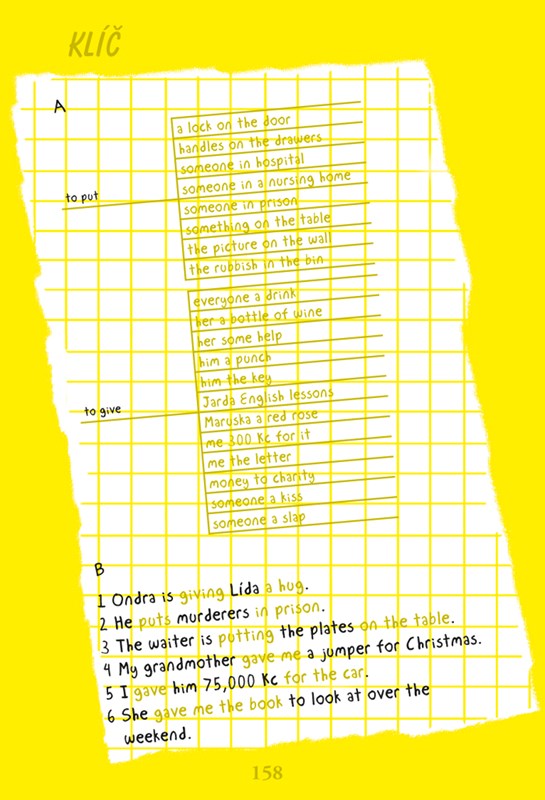 KLÍČ
A
to put
a lock on the door
handles on the drawers
someone in hospital
someone in a nursing home
someone in prison
something on the table
the picture on the wall
the rubbish in the bin
to give
everyone a drink
her a bottle of wine
her some help
him a punch
him the key
Jarda English lessons
Maruska a red rose
me 300 Kc for it
me the letter
money to charity
someone a kiss
someone a slap
B
1 Ondra is giving Lída a hug.
2 He puts murderers in prison.
3 The waiter is putting the plates on the table.
4 My grandmother gave me a jumper for Christmas.
5 I gave him 75,000 Kc for the car.
6 She gave me the book to look at over the
weekend.
158